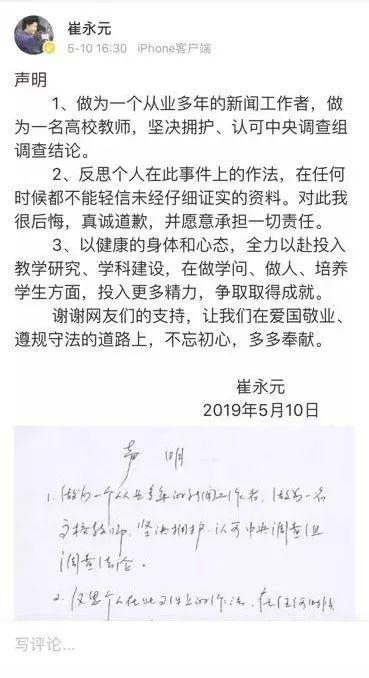 崔永元
5-10 16:30 iPhone客户端
声明
1、做为一个从业多年的新闻工作者，做
为一名高校教师，坚决拥护、认可中央调查组
调查结论。
2、反思个人在此事件上的作法，在任何
时候都不能轻信未经仔细证实的资料。对此我
很后悔，真诚道歉，并愿意承担一切责任。
3、以健康的身体和心态，全力以赴投入
教学研究、学科建设，在做学问、做人、培养
学生方面，投入更多精力，争取取得成就。
谢谢网友们的支持，让我们在爱国敬业、
遵规守法的道路上，不忘初心，多多奉献。
崔永元
2019年5月10日
声明
1、做为一个从业多年的新闻工作者，做为一名
高校教师，坚决拥护、认可中央调查组
调查结论。
2、反思个人在此事件上的作法，在任何时候
写评论...